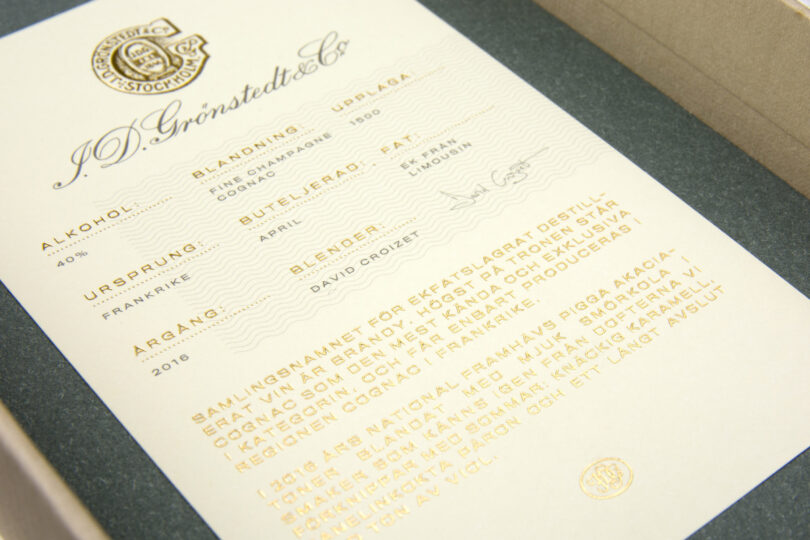 GRÖNSTEDT & Co
STOCKHOLM
J.D. Grönstedt & Co
ALKOHOL:
40%
BLANDNING:
FINE CHAMPAGNE
COGNAC
UPPLAGA:
1500
URSPRUNG:
FRANKRIKE
BUTELJERAD:
APRIL
FAT:
EK FRÅN
LIMOUSIN
ÅRGÅNG:
2016
BLENDER:
DAVID CROIZET
David Croizet
SAMLINGSNAMNET FÖR EKFATSLAGRAT DESTILL-
ERAT VIN ÄR BRANDY. HÖGST PÅ TRONEN STÅR
COGNAC SOM DEN MEST KÄNDA OCH EXKLUSIVA
I KATEGORIN, OCH FÅR ENBART PRODUCERAS I
REGIONEN COGNAC I FRANKRIKE.
I 2016 ÅRS NATIONAL FRAMHÄVS PIGGA AKACIA-
TONER BLANDAT MED MJUK SMÖRKOLA I
SMAKER SOM KÄNNS IGEN FRÅN DOFTERNA VI
FÖRKNIPPAR MED SOMMAR. KNÄCKIG KARAMELL,
PÄRON OCH ETT LÅNGT AVSLUT
TON AV VIOL.